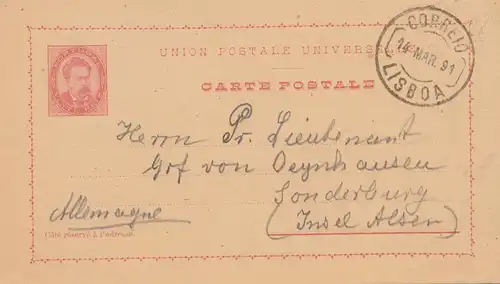 UNION POSTALE UNIVERSE
CARTE POSTALE
CORREIO
14 MAR. 91
LISBOA
Herrn Pr. Lieutenant
Grf von Oeynhausen
Sonderburg
(Insel Alsen)
Allemagne
Côté réservé à l'adresse.